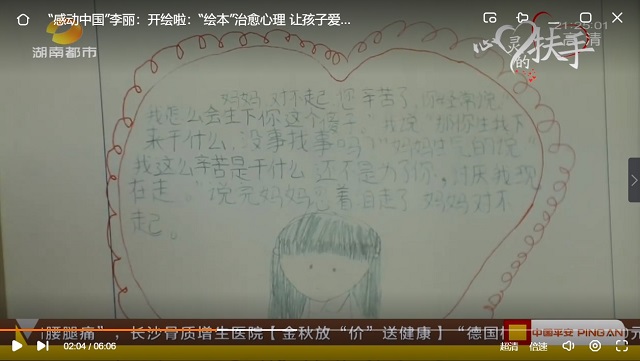 “感动中国”李丽：开绘啦：“绘本”治愈心理 让孩子爱...
湖南都市
21:25:01
高清
心灵的扶手
妈妈 对不起，您辛苦了，你经常说“
我怎么会生下你这个孩子”我说“那你生我下
来干什么，没事找事吗”妈妈生气的说“
我这么辛苦是干什么 还不是为了你，讨厌我现
在走。”说完妈妈 着 自走了 妈妈对不
起。
腰腿痛”，长沙骨质增生医院【金秋放“价”送健康】“德国
中国平安 PING AN
元
02:04 / 06:06
超清
倍速